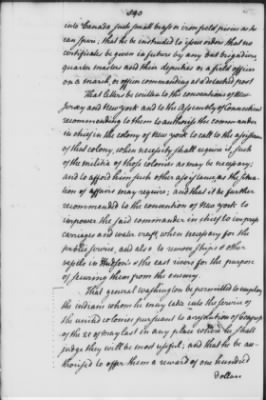 into Canada such small brass or iron field pieces as he
can spare; that he be instructed to issue orders that no
certificates be given in future by any but brigadiers,
quarter masters and their deputies or a field officer
on a march, or officer commanding at a detached post
That letters be written to the conventions of New
Jersey and New york and to the Assembly of Connecticut
recommending to them to authorise the commander
in chief in the colony of New york to call to the assistance
of that colony, when necessity shall require it, such
of the militia of those colonies as may be necessary;
and to afford him such other assistance as the situa
tion of affairs may require; and that it be further
recommended to the convention of New york to
impower the said commander in chief to impress
carriages and water craft when necessary for the
public service, and also to remove ships & other
vessels in Hudson's & the east rivers for the purpose
of securing them from the enemy.
That general washington be permitted to employ
the indians whom he may take into the service of
the united colonies pursuant to a resolution of Congress
of the 25 of may last in any place where he shall
judge they will be most useful; and that he be au-
thorised to offer them a reward of one hundred
dollars